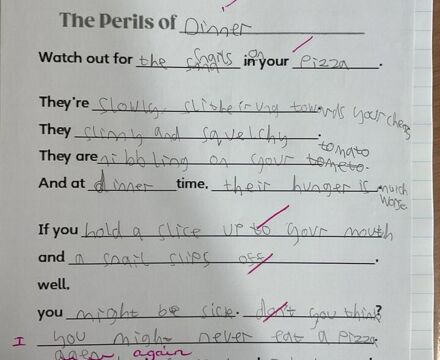 The Perils of Dinner
Watch out for the snails on in your pizza.
They're slowly slithering towards your cheese
They slimy and squelchy.
They are nibbling on your tomato.
And at dinner time. their hunger is much worse.
If you hold a slice up to your mouth
and a snail slips off.
well.
you might be sick. don't you think?
I you might never eat a pizza
again again